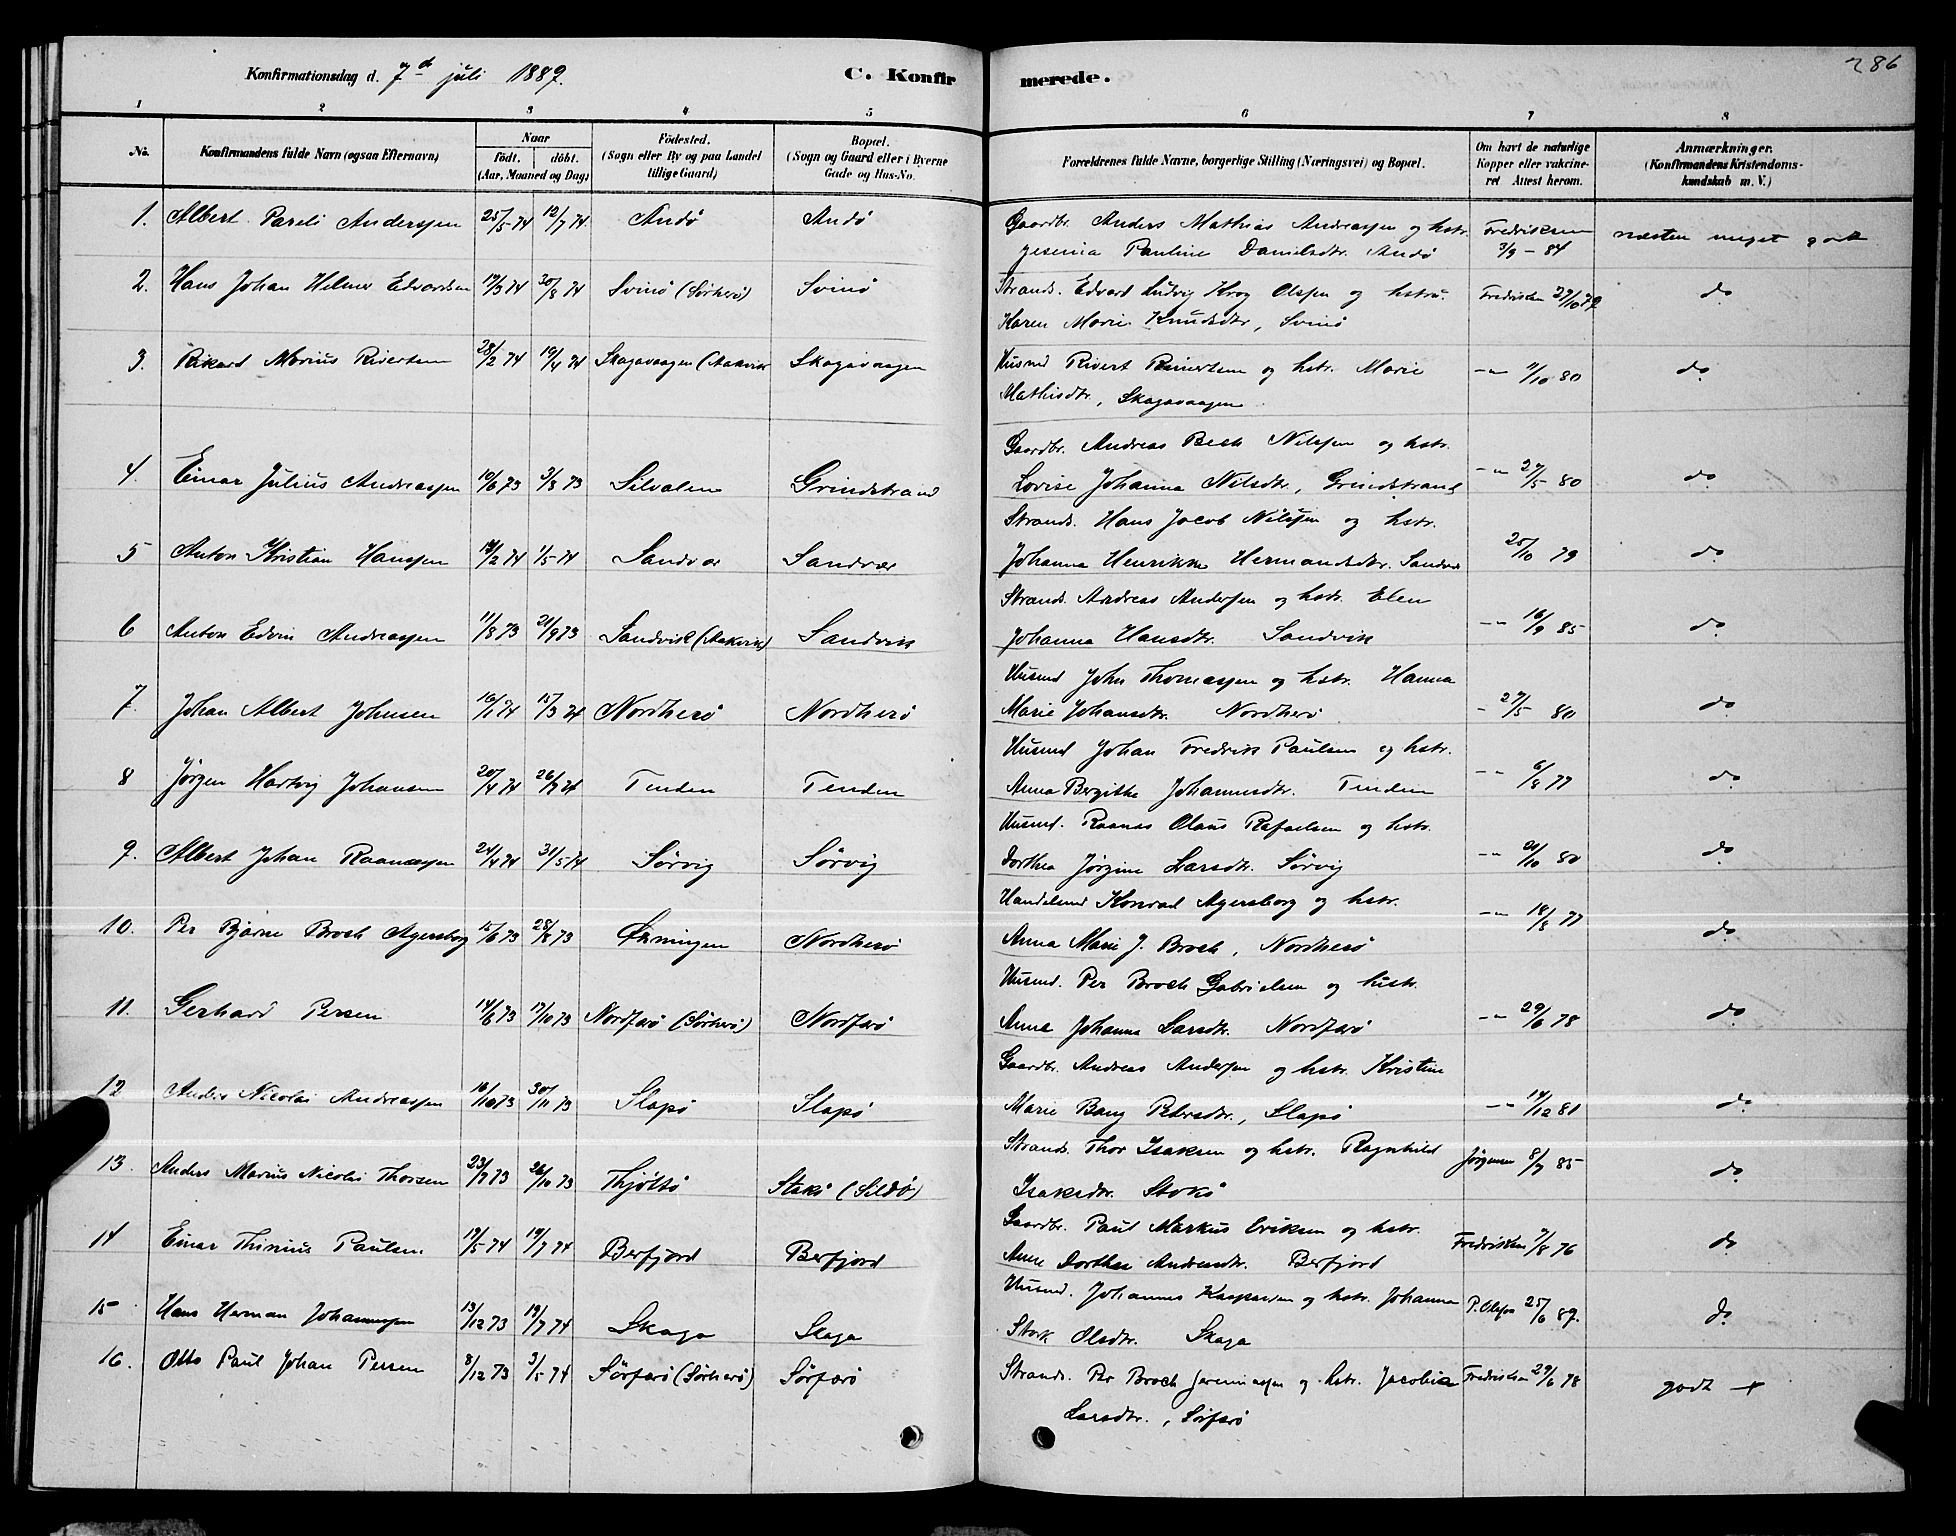 286
Konfirmationsdag d. 7d juli 1889. C. Konfirmerede.
1 2 3 4 5 6 7 8
No. Konfirmandens fulde Navn (ogsaa Efternavn) Naar födt. döbt. (Aar, Maaned og Dag) Födested. (Sogn eller By og paa Landet tillige Gaard) Bopæl. (Sogn og Gaard eller i Byerne Gade og Hus-No. Forældrenes fulde Navne, borgerlige Stilling (Næringsvei) og Bopæl. Om havt de naturlige Kopper eller vakcineret. Attest herom. Anmærkninger. (Konfirmandens Kristendomskundskab m. V.)
1. Albert Pareli Anderssen 25/5 74 12/7 74. Andö Andö Gaardbr. Anders Mathias Andreassen og hstr. Fredriksen næsten meget godt
Jesenia Pauline Danielsdtr. Andö 3/9 - 84
2. Hans Johan Helmer Edvardsen 19/3 74 30/8 74 Svinö (Sörherö) Svinö Strands. Edvard Ludvig Krog Olssen og hstru. Fredriksen 27/10 79 do
Karen Marie Knudsdtr, Svinö
3. Rikard Marius Rivertsen 28/2 74 19/4 74 Skagavaagen (Aakvik Skagavaagen Husmd Rivert Reinertsen og hstr. Marie -"- 11/10 80 do
Mathisdtr, Skagavaagen
Gaardbr. Andreas Bech Nilssen og hstr.
4. Einar Julius Andreassen 10/6 73 3/8 73 Silvalen Grindstrand Lovise Johanna Nilsdtr, Grindstrand -"- 27/5 80 do
Strands. Hans Jacob Nilssen og hstr.
5 Anton Kristian Hanssen 14/2 74 1/5 74 Sandvær Sandvær Johanna Henrikke Hermandsdtr. Sandvær 25/10 79 do
Strands. Andreas Anderssen og hstr. Elen
6 Anton Edvin Andreassen 11/8 73 21/9 73 Sandvik (Aakvik) Sandvik Johanna Hansdtr. Sandvik -"- 16/9 85 do
Husmd John Thomassen og hstr. Hanna
7. Johan Albert Johnsen 10/1 74 15/3 74 Nordherö Nordherö Marie Johansdtr. Nordherö - 27/5 80 do
Husmd Johan Fredrik Paulsen og hstr.
8 Jörgen Hartvig Johansen 20/4 74 26/7 74 Tenden Tenden Anna Bergithe Johannesdtr. Tenden -"- 6/8 77 do
Husmd. Raanas Olaus Rafaelsen og hstr.
9. Albert Johan Raanassen 24/4 74 31/5 74 Sörvig Sörvig Dorthea Jörgine Larsdtr. Sörvig -"- 21/10 80 do
Handelsmd Konrad Agersborg og hstr.
10. Per Bjarne Broch Agersborg 15/6 73 28/8 73 Nordherö Anna Marie J. Broch, Nordherö -"- 18/8 77 do
Husmd. Per Broch Gabrielsen og hustr.
11. Gerhard Persen 14/6 73 17/10 73 Nordfærö (Sörherö) Nordfærö Anna Johanna Larsdtr. Nordfærö -"- 29/6 78 do
Gaardbr. Andreas Anderssen og hstr. Kristine
12 Anders Nicolai Andreassen 16/10 73 30/11 73 Slapö Slapö Marie Bang Petersdtr., Slapö -"- 14/12 81 do
Strands. Thor Isaksen og hstr. Ragnhild Jörgensen 8/7 85
13. Anders Marius Nicolai Thorsen 23/7 73 26/10 73 Thjöttö Stokö (Sildö) Isaksdtr. Stokö do
14 Einar Thinius Paulsen 19/5 74 19/7 74 Berfjord Berfjord Gaardbr. Paul Markus Eriksen og hstr. Fredriksen 7/8 76 do
Anne Dorthea Andersdtr. Berfjord
15 Hans Herman Johannessen 13/12 73 19/7 74 Skaga Skaga Husmd. Johannes Kaspersen og hstr. Johanna P. Olsen 25/6 87. do
Stork Olsdtr. Skaga
16. Otto Paul Johan Persen 8/12 73 3/5 74 Sörfærö (Sörherö) Sörfærö Strands. Per Broch Jeremiassen og hstr. Jacobia Fredriksen 29/6 78 godt +
Larsdtr., Sörfærö